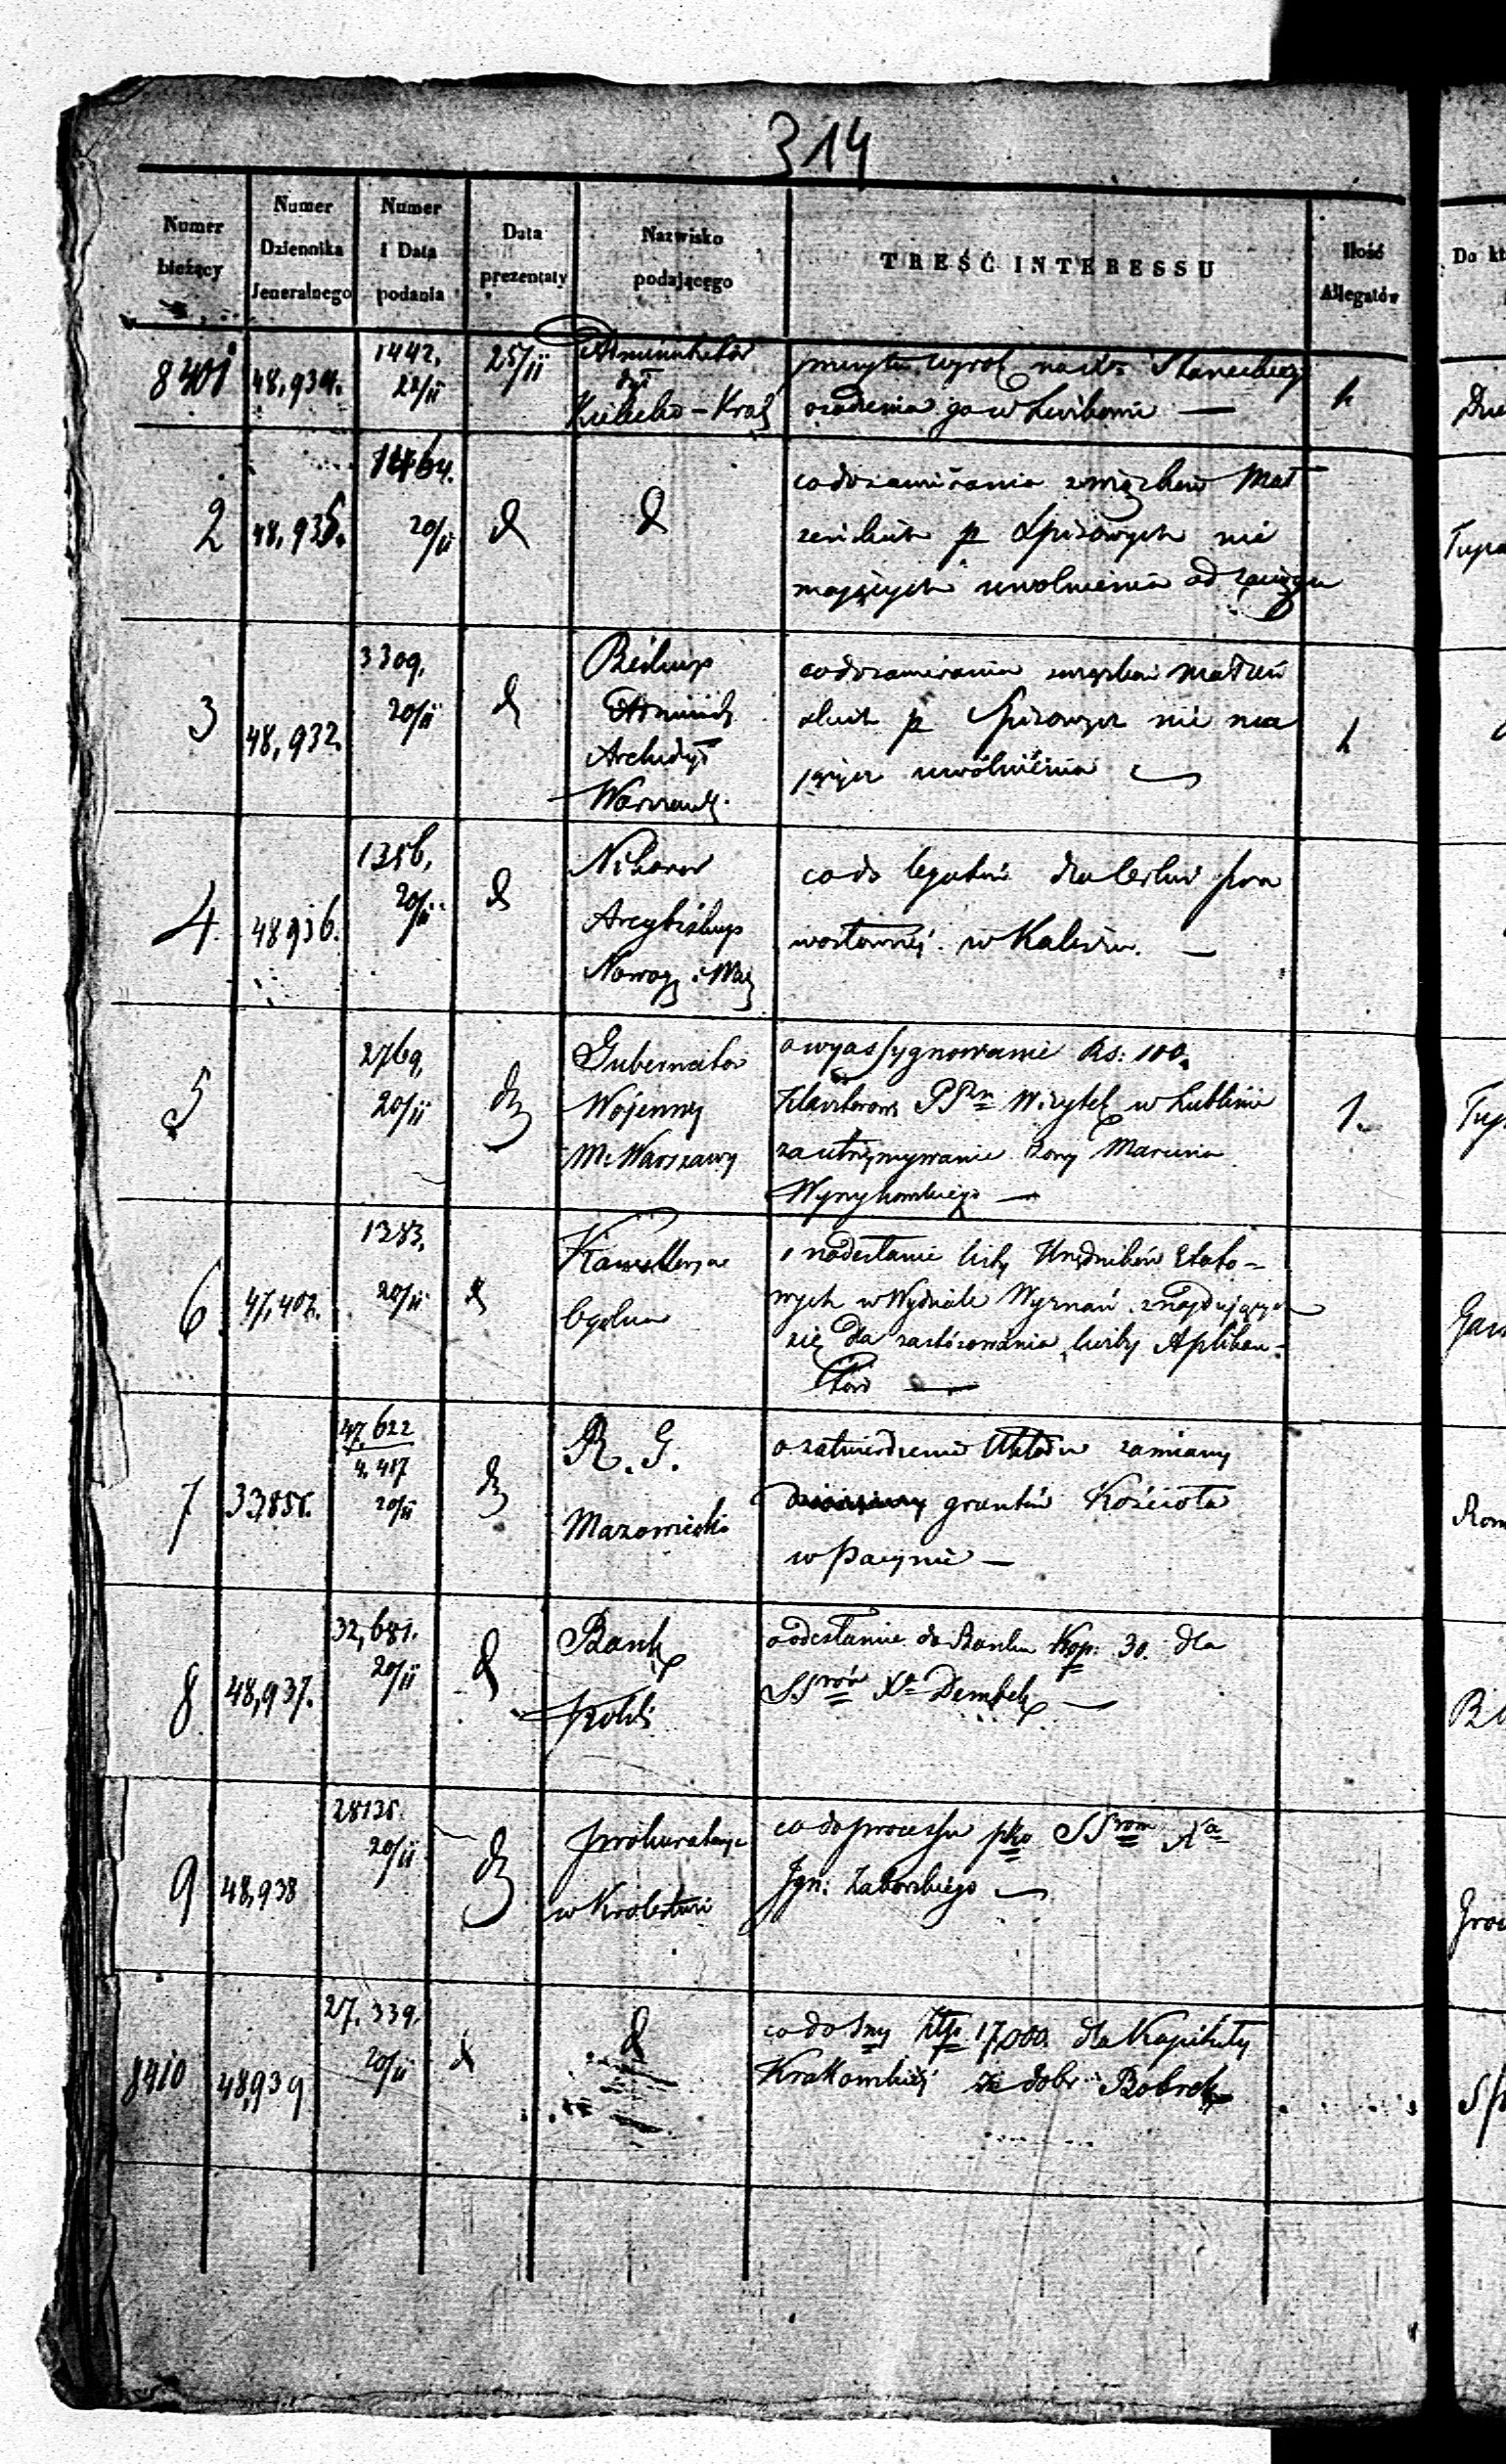 314
Numer bieżący
Numer Dziennika Jeneralnego
Numer i Data podania
Data prezentaty
Nazwisko podającego
TREŚĆ INTERESSU
Ilość Allegatów
Do kt
8401 48,934. 1442, 22/II 25/II Administrator
dyś
Kielecko-Krak
osadzenia go w —
2 48,935. 1464. 20/II d d
co do zawierania związków Mał
żeńskich p Spisowych nie
mających uwolnienia od zaciągu
3 48,932. 3309, 20/II d Biskup
Administr
Archidyś
Warszawsk.
co do zawierania związków małżeń
skich p Spisowych nie ma
jących uwolnienia
4. 48936. 1356, 20/II d Nikanor
Arcybiskup
Nowog i War
co do legatów dla Cerkwi pra
wosławnéj w Kaliszu. —
5 2769, 20/II d Gubernator
Wojenny
M. Warszawy
o wyassygnowanie Rs: 100.
Klasztorowi PPn Wizytek w Lublinie
za utrzymywanie żony Marcina
—
1.
6. 47,402. 1383, 20/II d Kancellarya
Ogólna
o nadesłanie listy Urzędników Etato-
wych w Wydziale Wyznań znajdujących
się dla zastósowania liczby Aplikan-
tów —
7 33,855. 47,622
4,417
20/II d R. G.
Mazowiecki
o zatwierdzenie Układu zamiany
gruntów Kościoła
w Pacynie —
8 48,937. 32,681. 20/II d Bank
Polski
o odesłanie do Banku Kop: 30. dla
SSrów Xa Dembek —
9 48,938 28135. 20/II d Prokuratorya
w Królestwie
co do processu pko SSrom Xa
Ign: Zaborskiego —
8410 48,939 27,339. 20/II d d
co do Sumy Złp. 17,000 dla Kapituły
Krakowskiéj z dobr Bobrek